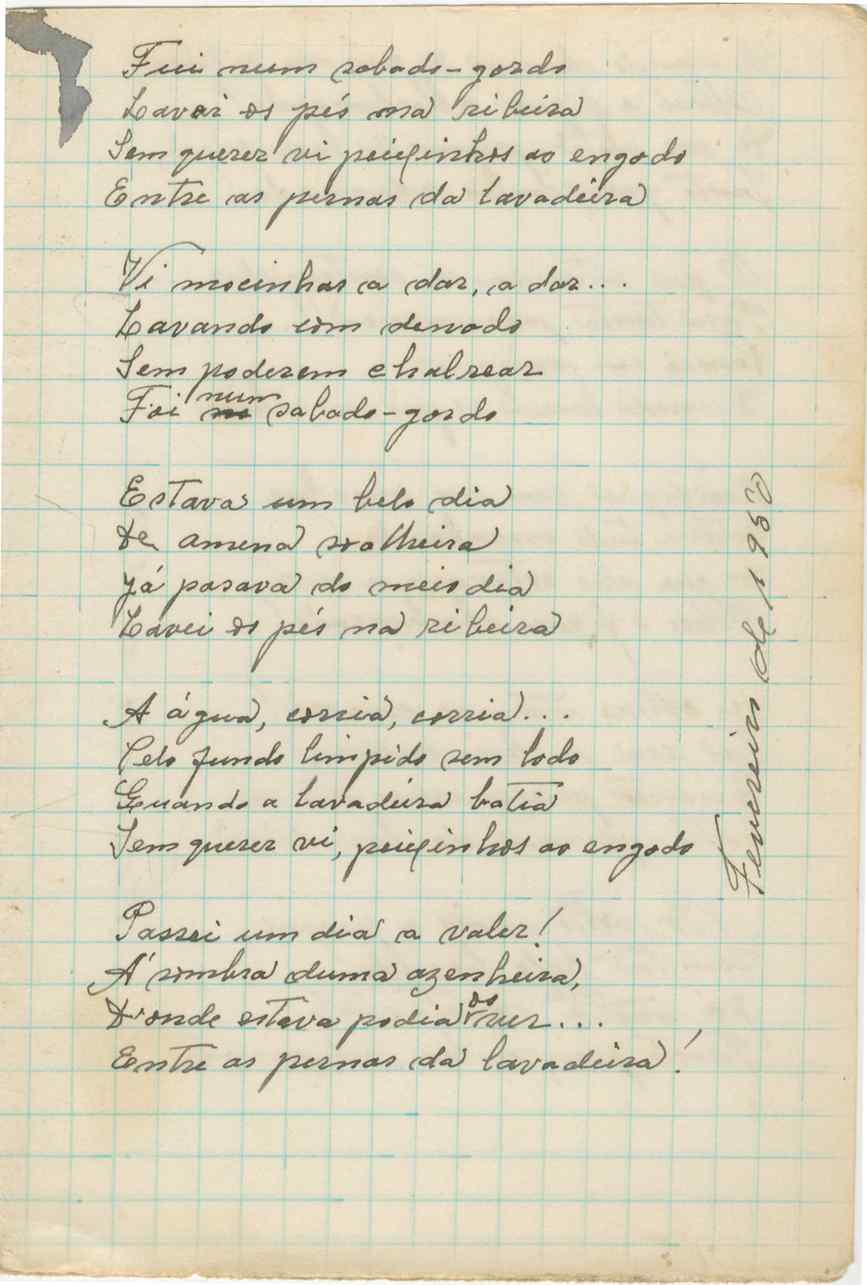 Fui num sabado-gordo
Lavei os pés na ribeira
Sem querer vi peixinhos ao engodo
Entre as pernas da lavadeira
Vi mocinhas a dar, a dar...
Lavando com denodo
Sem poderem chalrear
Foi num sabado-gordo
Estava um belo dia
De amena soalheira
Já pasava do meio dia
Lavei os pés na ribeira
A água, corria, corria...
Pelo fundo limpido sem lodo
Quando a lavadeira batia
Sem querer vi, peixinhos ao engodo
Passei um dia a valer!
Á sombra duma azenheira,
D'onde estava podia os ver...
Entre as pernas da lavadeira!
Fevereiro de